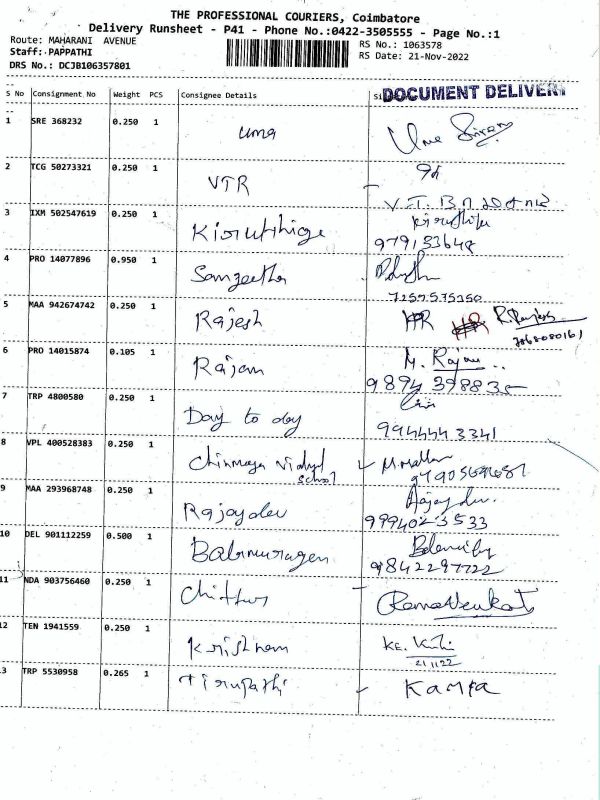 THE PROFESSIONAL COURIERS, Coimbatore
Delivery Runsheet - P41 - Phone No.:0422-3505555 - Page No.:1
Route: MAHARANI AVENUE
RS No.: 1063578
Staff: PAPPATHI
RS Date: 21-Nov-2022
DRS No.: DCJB106357801
S No Consignment No Weight PCS Consignee Details Si
DOCUMENT DELIVERY
1 SRE 368232 0.250 1 Uma Uma
2 TCG 50273321 0.250 1 VTR
3 IXM 502547619 0.250 1 Kiruthige
4 PRO 14077896 0.950 1 Sangeetha
7259535350
5 MAA 942674742 0.250 1 Rajesh HR HR R.Rajesh
7868080161
6 PRO 14015874 0.105 1 Rajam M. Rajam
9894398835
7 TRP 4800580 0.250 1 Day to day
9944443341
8 VPL 400528383 0.250 1 Chinmaya Vidyal
School
9 MAA 293968748 0.250 1 Rajaydev
9994023533
10 DEL 901112259 0.500 1 Balamurugan
9842297722
11 NDA 903756460 0.250 1 Chittur RamaVenkat
12 TEN 1941559 0.250 1 Krishnam KE.
21/11/22
3 TRP 5530958 0.265 1 Tirupathi Kamya